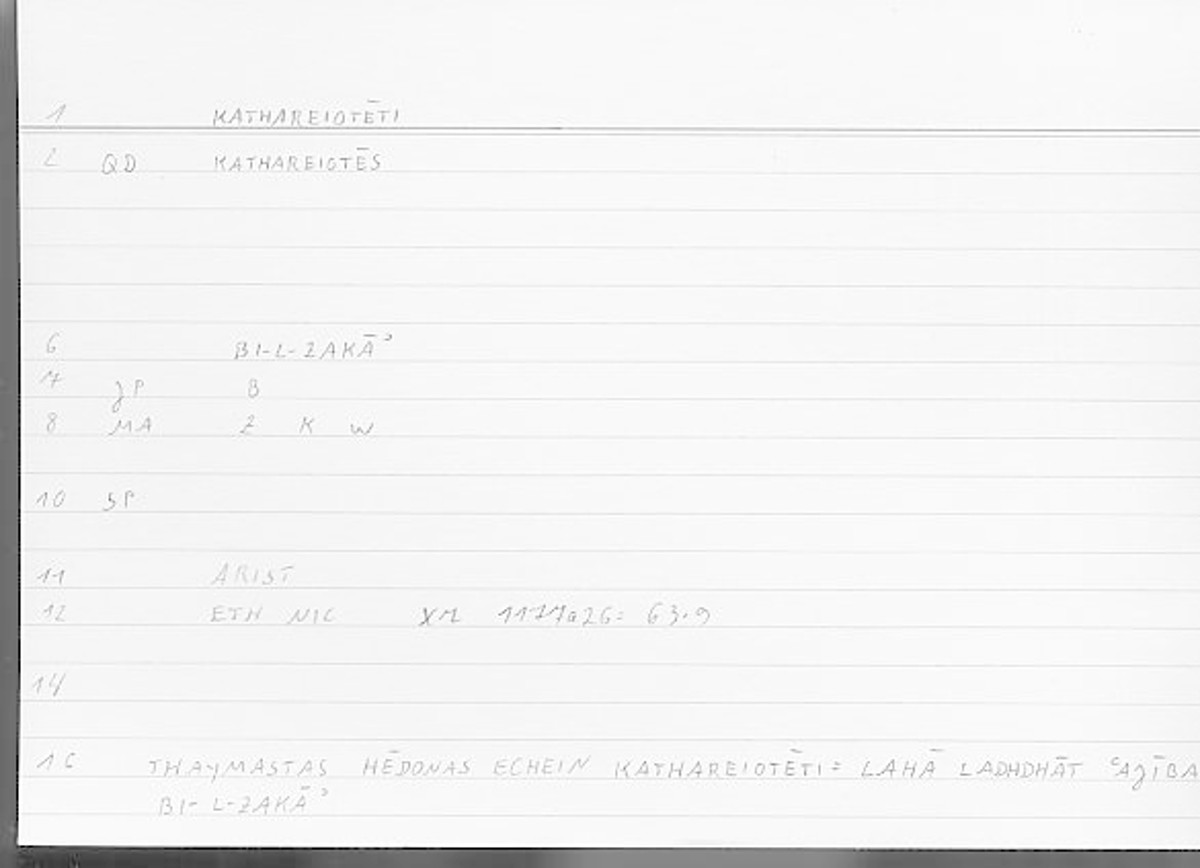 1 KATHAREIOTĒTI
2 QD KATHAREIOTĒS
6 BI-L-ZAKĀʾ
7 JP B
8 MA Z K W
10 SP
11 ARIST
12 ETH NIC X7 1177a26= 63.9
14
16 THAYMASTAS HĒDONAS ECHEIN KATHAREIOTĒTI= LAHĀ LADHDHĀT ʿAJĪBA
BI-L-ZAKĀʾ